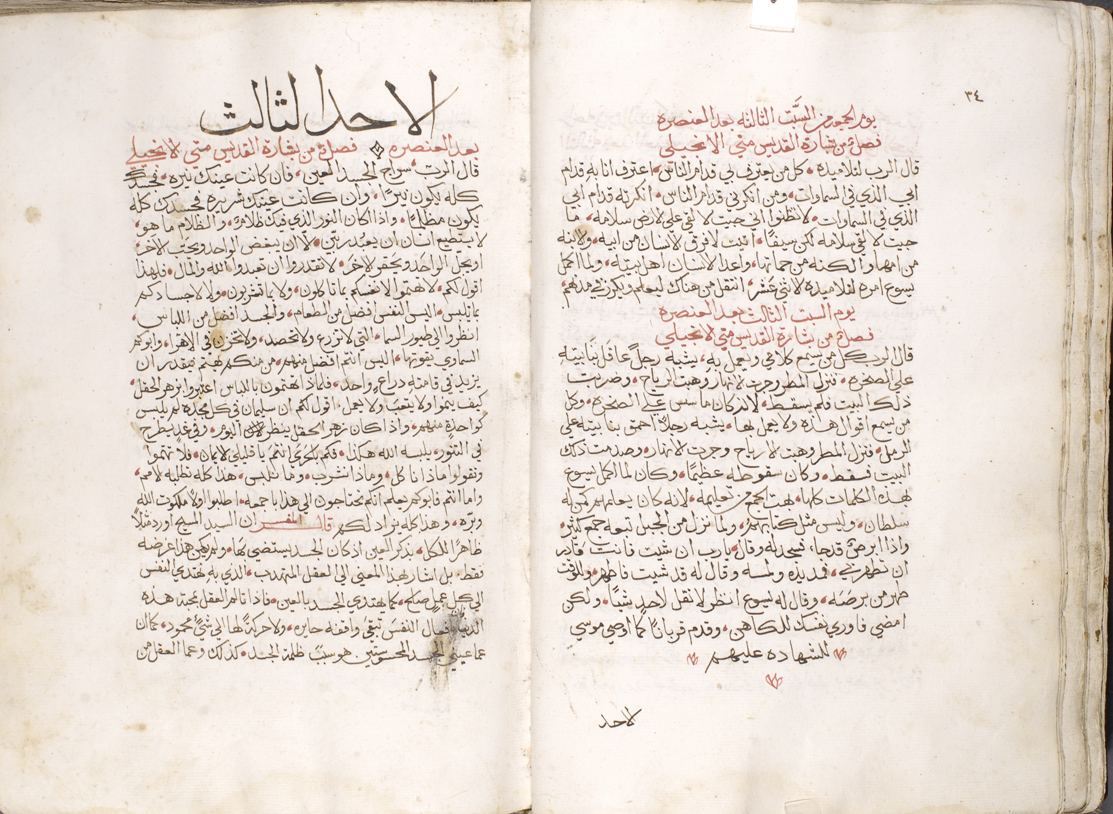 ٣٤
يوم الجمعه من السبت الثالثه بعد العنصره
فصل من بشارة القديس متي الانجيلي
قال الرب لتلاميذه، كل من يعترف بي قدام الناس، اعترف انا به قدام
ابي الذي في السماوات، ومن انكرني قدام الناس، انكرته قدام ابي
الذي في السماوات، لا تظنوا اني جيت لالقي علي الارض سلامه، ما
جيت لالقي سلامه لكن سيفًا، اتيت لافرق الانسان من ابيه، والابنه
من امها، والكنه من حماتها، واعدا الانسان اهل بيته، ولما اكمل
يسوع امره لتلاميذه الاثني عشر، انتقل من هناك ليعلم ويكرز في مدنهم،
يوم السبت الثالث بعد العنصره
فصل من بشارة القديس متي الانجيلي
قال الرب كل من يسمع كلامي ويعمل به، يشبه رجلاً عاقل بنا بيته
علي الصخره، فنزل المطر وجرت الانهار وهبت الرياح، وصدمت
ذلك البيت فلم يسقط، لانه كان ماسس علي الصخره، وكل
من سمع اقوالي هذه ولا يعمل بها، يشبه رجلاً احمق بنا بيته علي
الرمل، فنزل المطر وهبت الارياح وجرت الانهار، وصدمت ذلك
البيت فسقط، وكان سقوطه عظيمًا، وكان لما اكمل يسوع
هذه الكلمات كلها، بهت الجمع من تعليمه، لانه كان يعلمهم كمن له
سلطان، وليس مثل كتابهم، ولما نزل من الجبل تبعه جمع كثير،
واذا ابرص قد جا، فسجد له وقال، يا رب ان شيت فانت قادر
ان تطهرني، فمد يده ولمسه وقال له قد شيت فاطهر، وللوقت
طهر من برصه، وقال له يسوع انظر لا تقل لاحد شيًا، ولكن
امضي فاوري نفسك للكاهن، وقدم قربانًا كما اوصي موسي
للشهاده عليهم
الاحد
الاحد الثالث
بعد العنصره فصل من بشارة القديس متي الانجيلي
قال الرب، سراج الجسد العين، فان كانت عينك نيره، فجسدك
كله يكون نيرًا، وان كانت عينك شريره فجسدك كله
يكون مظلمًا، واذا كان النور الذي فيك ظلامًا، والظلام ما هو،
لا يستطيع انسان ان يعبد ربين، لا ان يبغض الواحد ويحب الاخر،
او يجل الواحد ويحقر الاخر، لا تقدروا ان تعبدوا الله والمال، فلهذا
اقول لكم، لا تهتموا لانفسكم بما تاكلون، ولا بما تشربون، ولا لاجسادكم
بما تلبس، اليس النفس افضل من الطعام، والجسد افضل من اللباس،
انظروا الي طيور السما، التي لا تزرع ولا تحصد، ولا تخزن في الاهرا، وابوكم
السماوي يقوتها، اليس انتم افضل منهم، من منكم يهتم فيقدر ان
يزيد في قامته دراع واحد، فلماذا تهتمون باللباس اعتبروا بزهر الحقل،
كيف ينموا ولا يتعب ولا يعمل، اقول لكم ان سليمان في كل مجده لم يلبس
كواحدة منهم، واذا كان زهر الحقل ينظر اليوم، وفي غد يطرح
في التنور، يلبسه الله هكذا، فكم بالحري انتم يا قليلي الايمان، فلا تهتموا
وتقولوا ماذا ناكل، وماذا نشرب، وما نلبس، هذا كله تطلبه الامم،
واما انتم فابوكم يعلم انكم تحتاجون الي هذا باجمعه، اطلبوا اولاً ملكوت الله
وبره، وهذا كله يزاد لكم، قال المفسر ان السيد المسيح اورد مثلاً
ظاهرًا للكل، بذكر العين اذ كان الجسد يستضي بها، ولم يكن هذا غرضه
فقط، بل اشار بهذا المعني الي العقل المتهدب، الذي به تهتدي النفس
الي كل عمل صالح، كما يهتدي الجسد بالعين، فاذا تالم العقل بمحبة هذه
الدنيا، فبال النفس تبقي واقفه حايره، ولا حركة لها الي شي محمود، كما ان
عما عيني الجسد المحسوستين هو سبب ظلمة الجسد، كذلك وعما العقل من